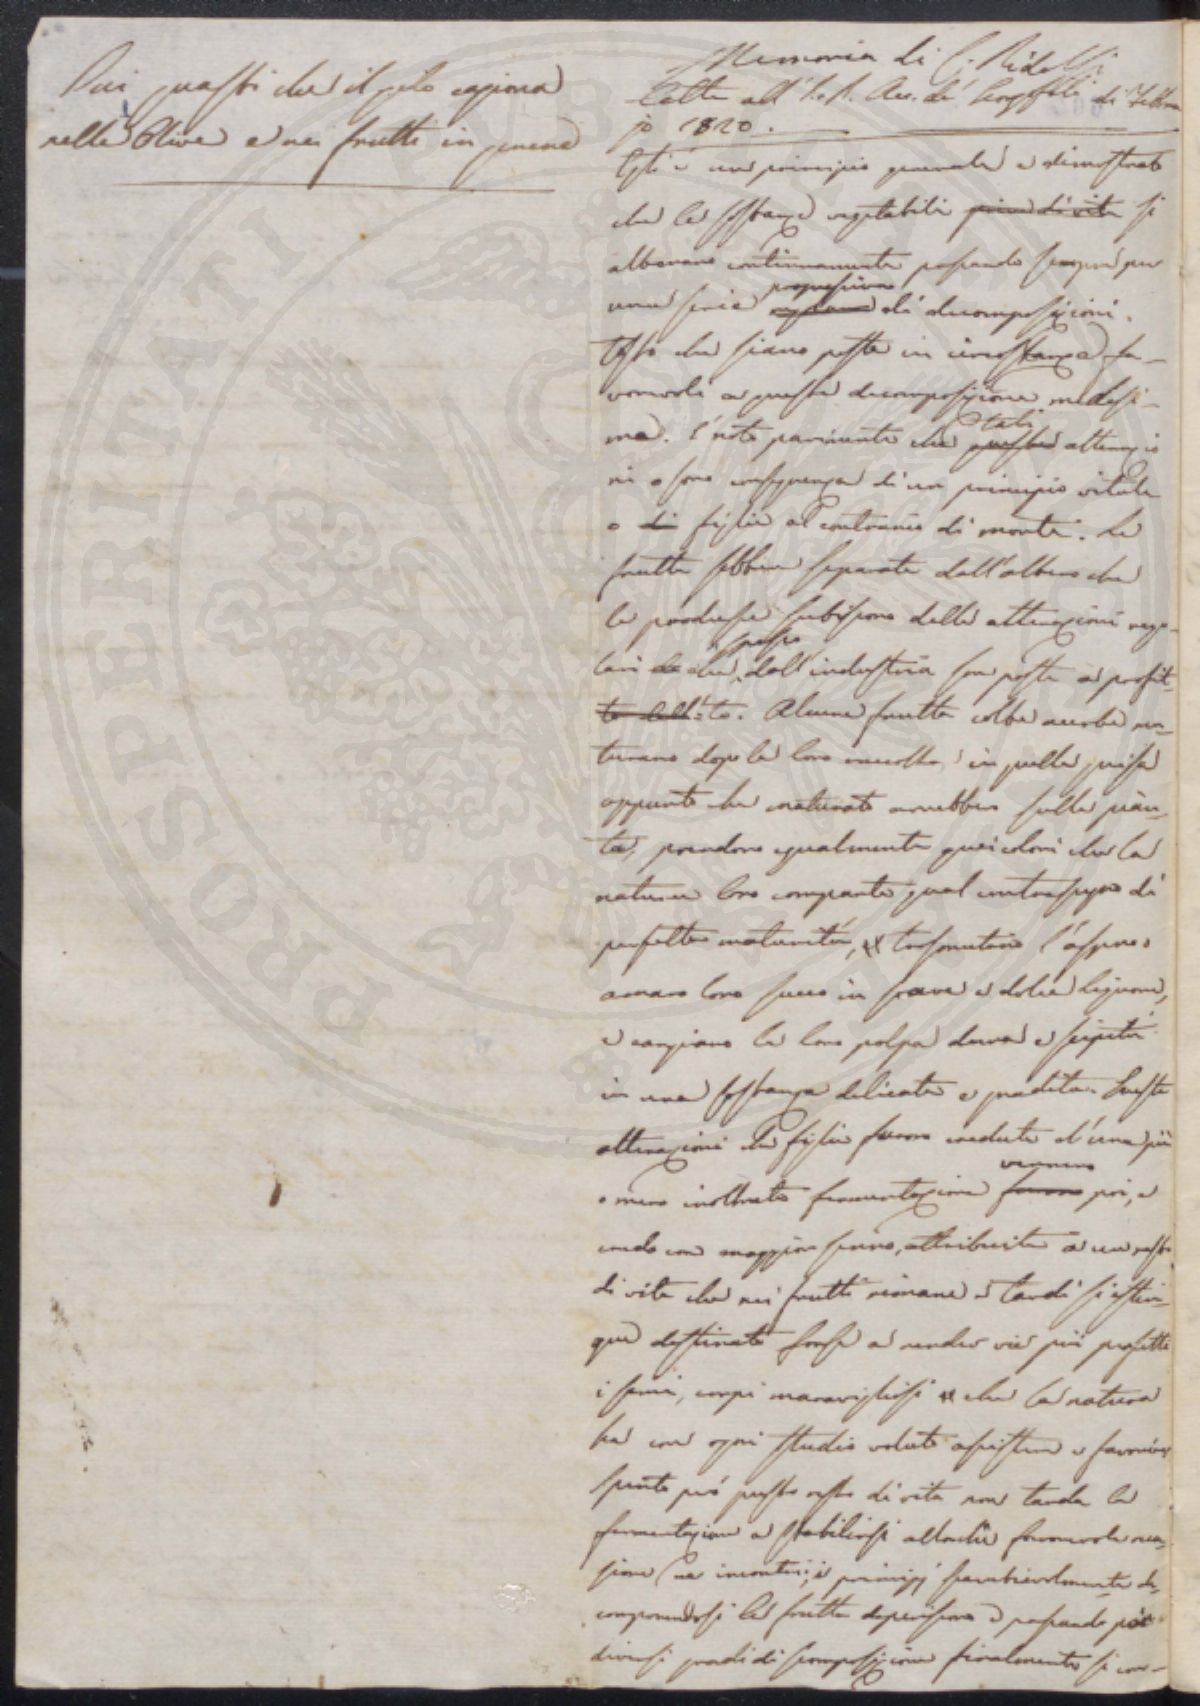 Dei guasti che il gelo cagiona
nelle Olive e nei frutti in genere
Memoria di C. Ridolfi
Letta all' I. e R. Acc. de' Georgofili di Febbra
jo 1820.
Egli è un principio generale e dimostrato
che le sostanze vegetabili prive di vita si
alterano continuamente passando sempre per
una serie progressiva di decomposizioni.
Tosto che siano poste in circostanze fa-
vorevoli a questa decomposizione medesi-
ma. È noto parimente che tali questi alterazio
ni o sono conseguenza di un principio vitale
o di figlie al contrario di morte. Le
frutta sebben separate dall'albero che
le produsse subiscono delle alterazioni rego-
lari che spesso dall'industria son poste a profit-
to dell':to. Alcune frutta colte acerbe ma-
turano dopo la loro raccolta in quella guisa
appunto che maturate sarebbero sulla pian-
ta; prendono egualmente quei colori che la
natura loro comparte qual contrassegno di
perfetta maturità, trasmutano l'aspro o
amaro loro succo in soave e dolce liquore,
e cangiano la loro polpa dura e scipita
in una sostanza delicata e gradita. Queste
alterazioni che figlie furon credute d'una più
o meno inoltrata fermentazione vennero furono poi, e
credo con maggior senno, attribuite a un resto
di vita che nei frutti rimane e tardi si estin-
gue destinato forse a render vie più perfetti
i semi, corpi maravigliosi che la natura
ha con ogni studio voluto assistere e favorire
Spento però questo resto di vita non tarda la
fermentazione a stabilirsi allorché favorevole occa-
sione ne incontri; i principj scambievolmente de-
componendosi le frutta deperiscono e passando per
diversi gradi di scomposizione finalmente si con-